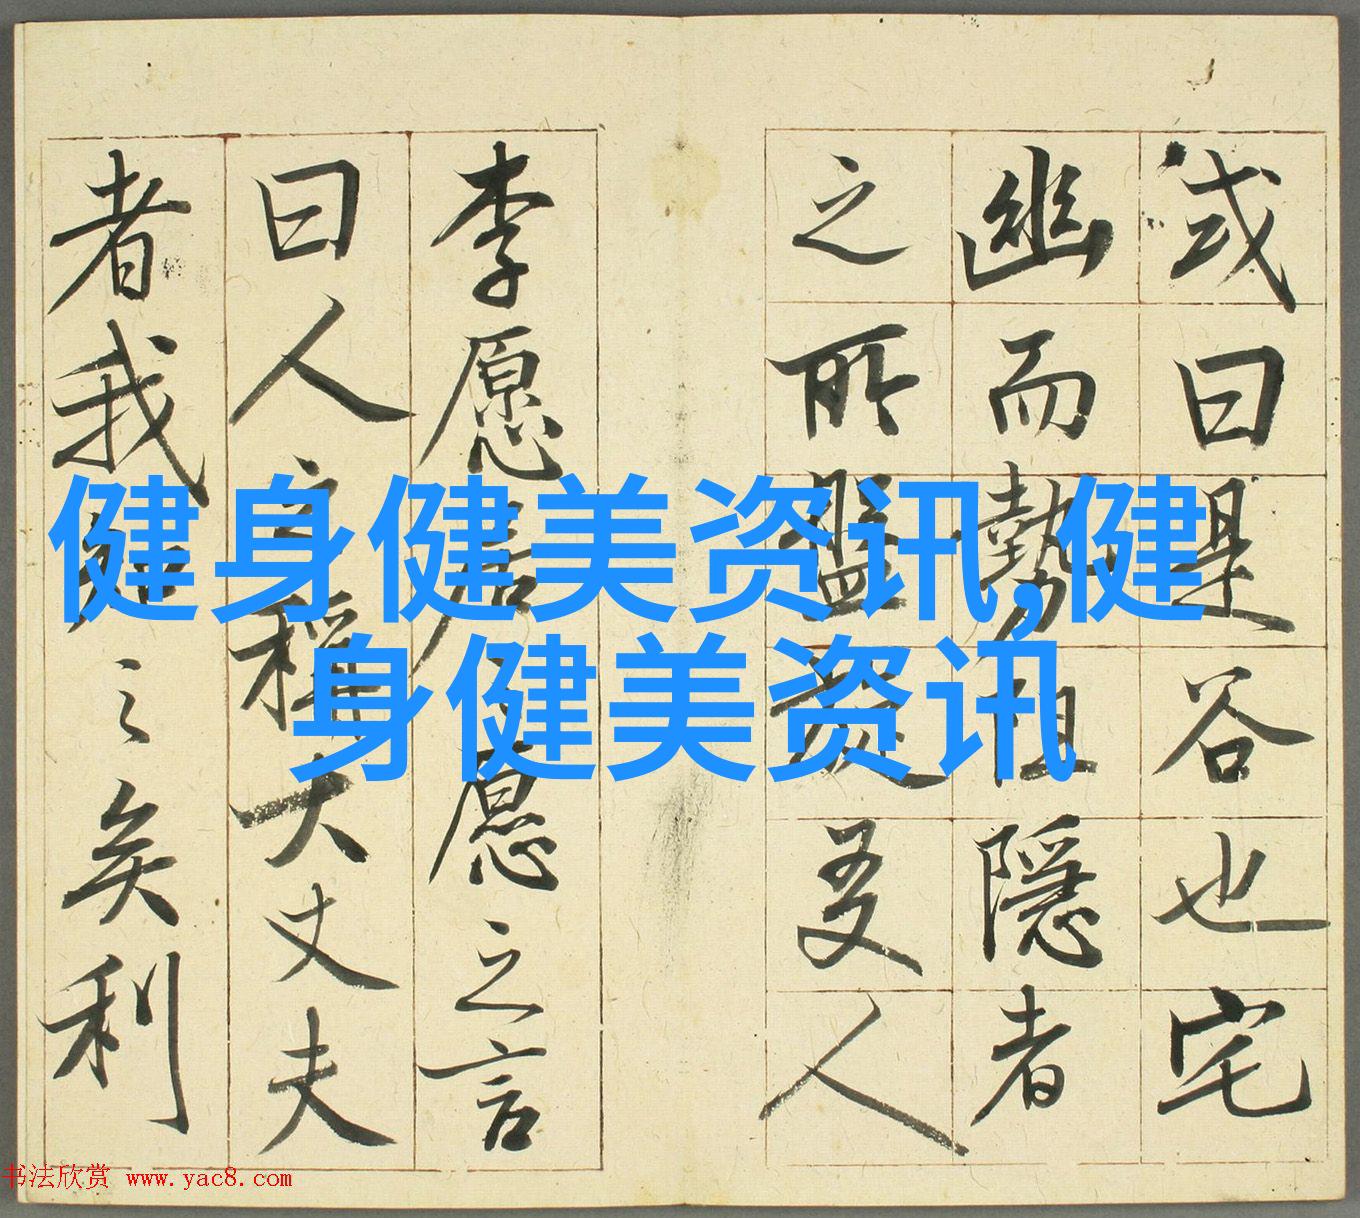 或曰是谷也宅
幽而勢阻隱者
之所盤旋友人
李愿居之愿之言
曰人之稱大丈夫
者我知之矣利
健身健美资讯,健
身健美资讯
书法欣赏 www.yac8.com